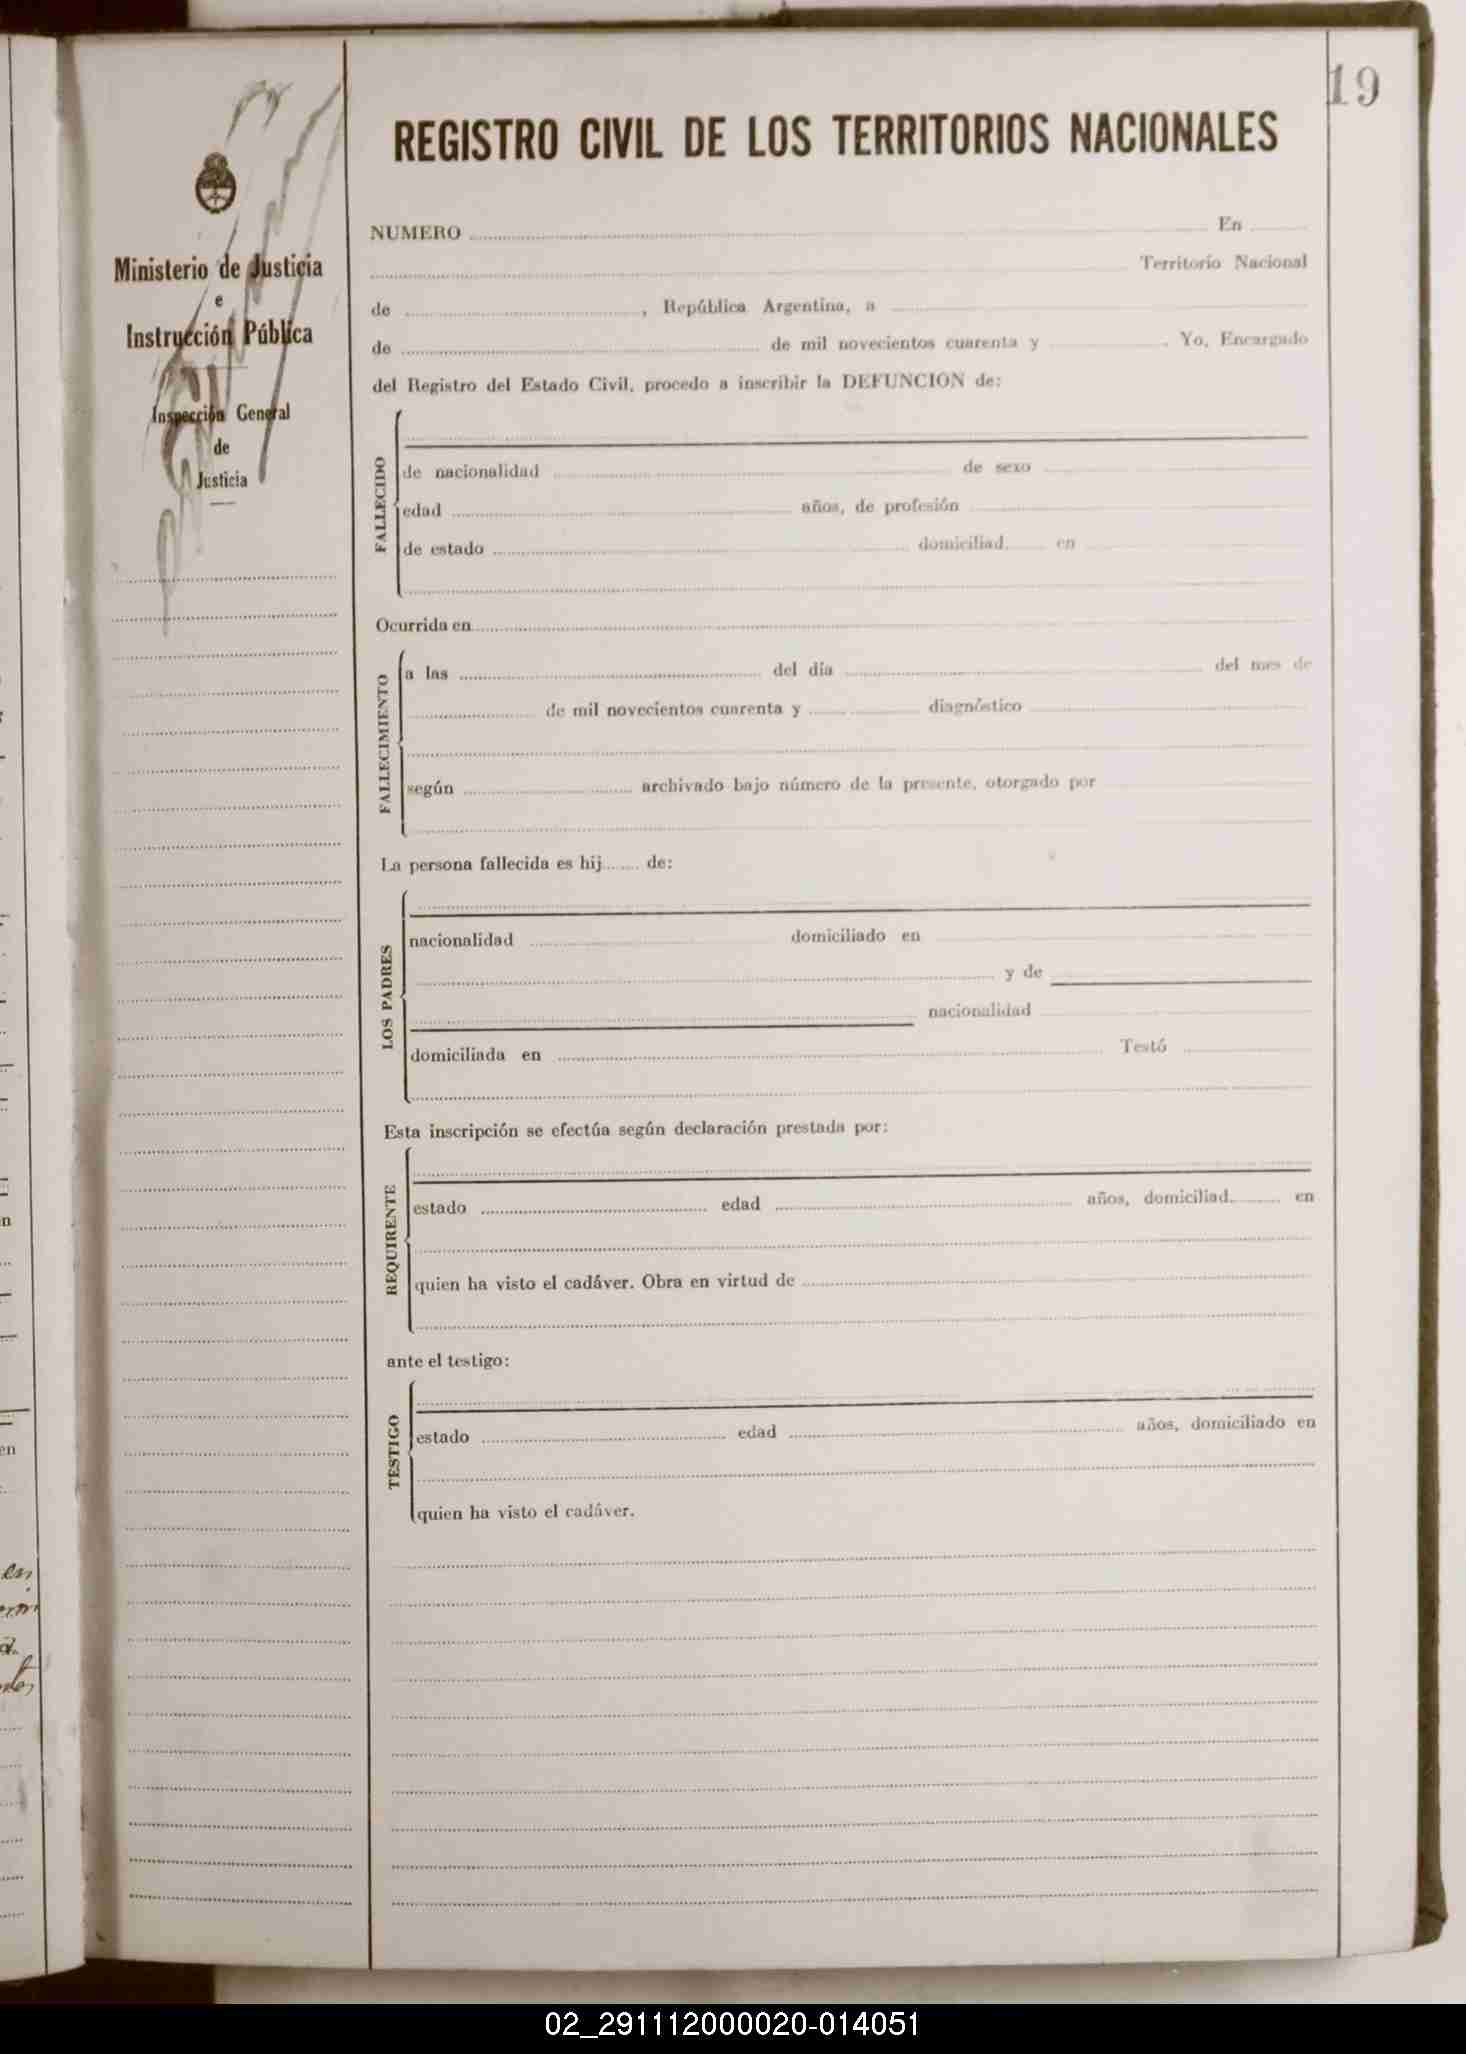 19
REGISTRO CIVIL DE LOS TERRITORIOS NACIONALES
Ministerio de Justicia
e
Instrucción Pública
Inspección General
de
Justicia
NUMERO En
Territorio Nacional
de , República Argentina, a
de de mil novecientos cuarenta y . Yo, Encargado
del Registro del Estado Civil, procedo a inscribir la DEFUNCION de:
FALLECIDO
de nacionalidad de sexo
edad años, de profesión
de estado domiciliad en
Ocurrida en
FALLECIMIENTO
a las del día del mes de
de mil novecientos cuarenta y diagnóstico
según archivado bajo número de la presente, otorgado por
La persona fallecida es hij de:
LOS PADRES
nacionalidad domiciliado en
y de
nacionalidad
domiciliada en Testó
Esta inscripción se efectúa según declaración prestada por:
REQUIRENTE
estado edad años, domiciliad en
quien ha visto el cadáver. Obra en virtud de
ante el testigo:
TESTIGO
estado edad años, domiciliado en
quien ha visto el cadáver.
02_291112000020-014051